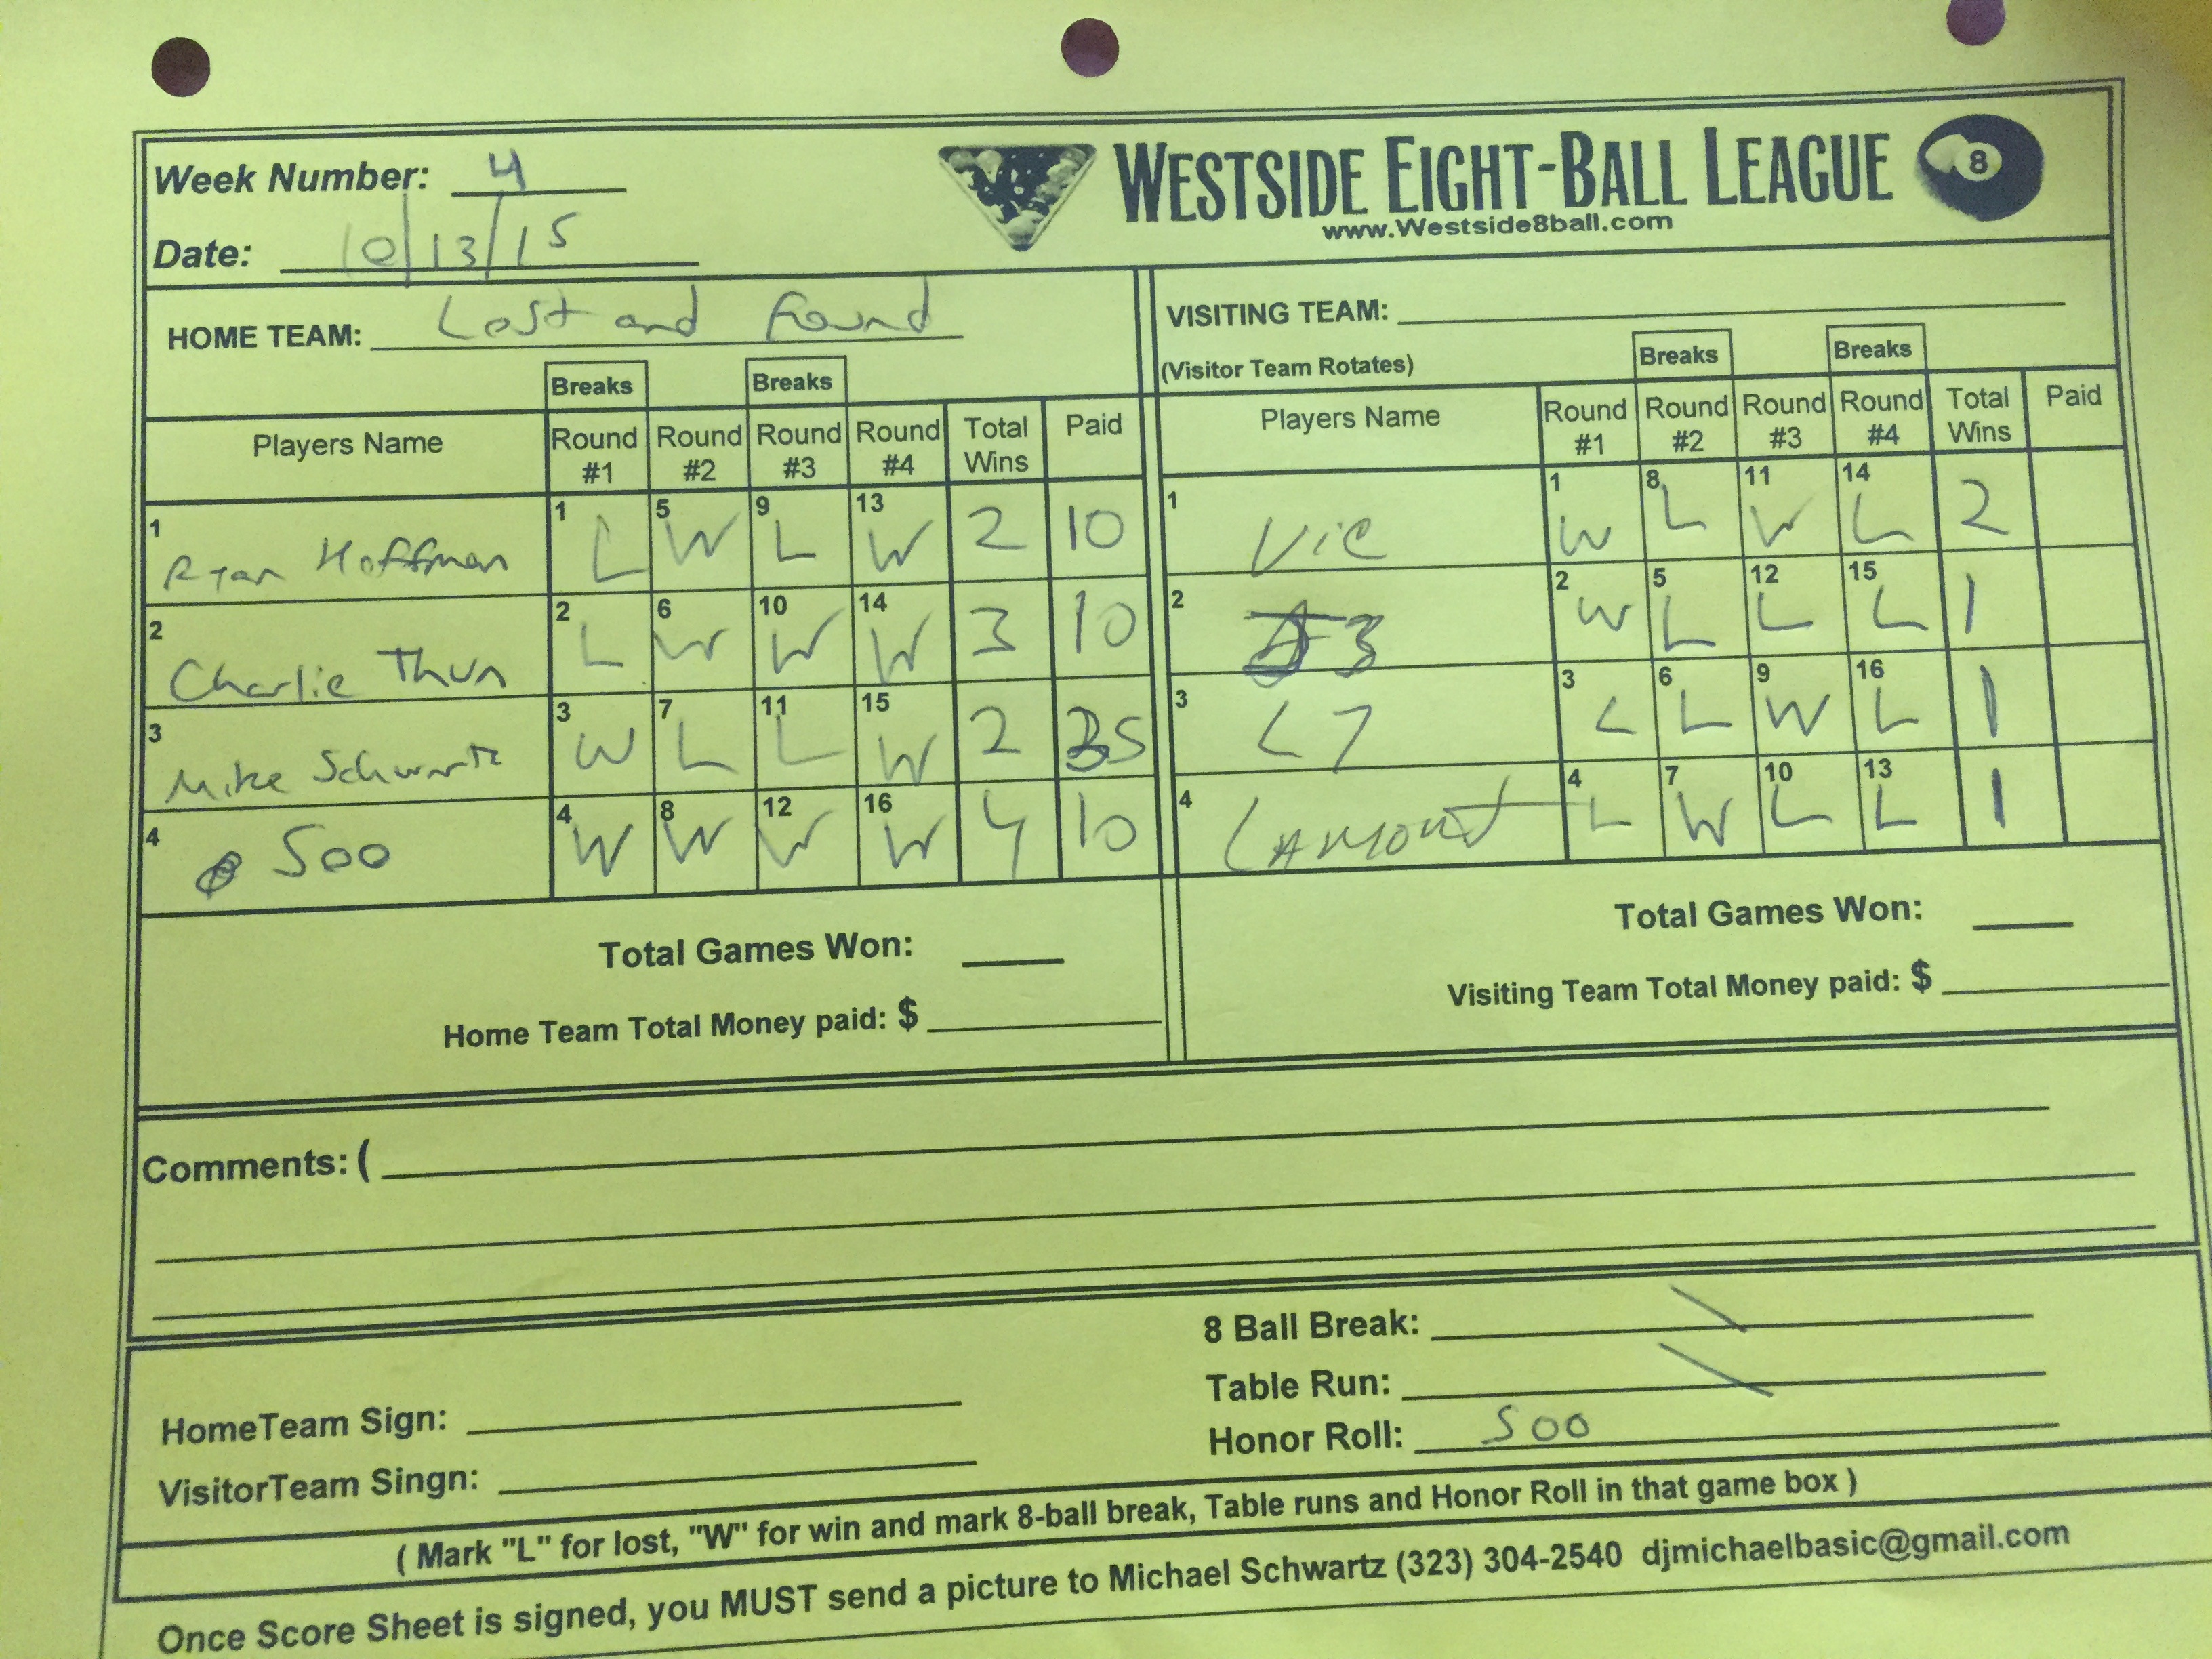 Week Number: 4
WESTSIDE EIGHT-BALL LEAGUE 8
www.Westside8ball.com
Date: 10/13/15
HOME TEAM: Lost and Found
VISITING TEAM:
(Visitor Team Rotates)
Breaks Breaks Breaks Breaks
Players Name Round #1 Round #2 Round #3 Round #4 Total Wins Paid Players Name Round #1 Round #2 Round #3 Round #4 Total Wins Paid
1 Ryan Hoffman 1 L 5 W 9 L 13 W 2 10 1 Vic 1 W 8 L 11 W 14 L 2
2 Charlie Thun 2 L 6 W 10 W 14 W 3 10 2 2 W 5 L 12 L 15 L 1
3 Mike Schwartz 3 W 7 L 11 L 15 W 2 35 3 L7 3 L 6 L 9 W 16 L 1
4 Soo 4 W 8 W 12 W 16 W 4 10 4 LAMONT 4 L 7 W 10 L 13 L 1
Total Games Won:
Total Games Won:
Home Team Total Money paid: $
Visiting Team Total Money paid: $
Comments: (
8 Ball Break:
Table Run:
HomeTeam Sign:
Honor Roll: Soo
VisitorTeam Singn:
( Mark "L" for lost, "W" for win and mark 8-ball break, Table runs and Honor Roll in that game box )
Once Score Sheet is signed, you MUST send a picture to Michael Schwartz (323) 304-2540 djmichaelbasic@gmail.com